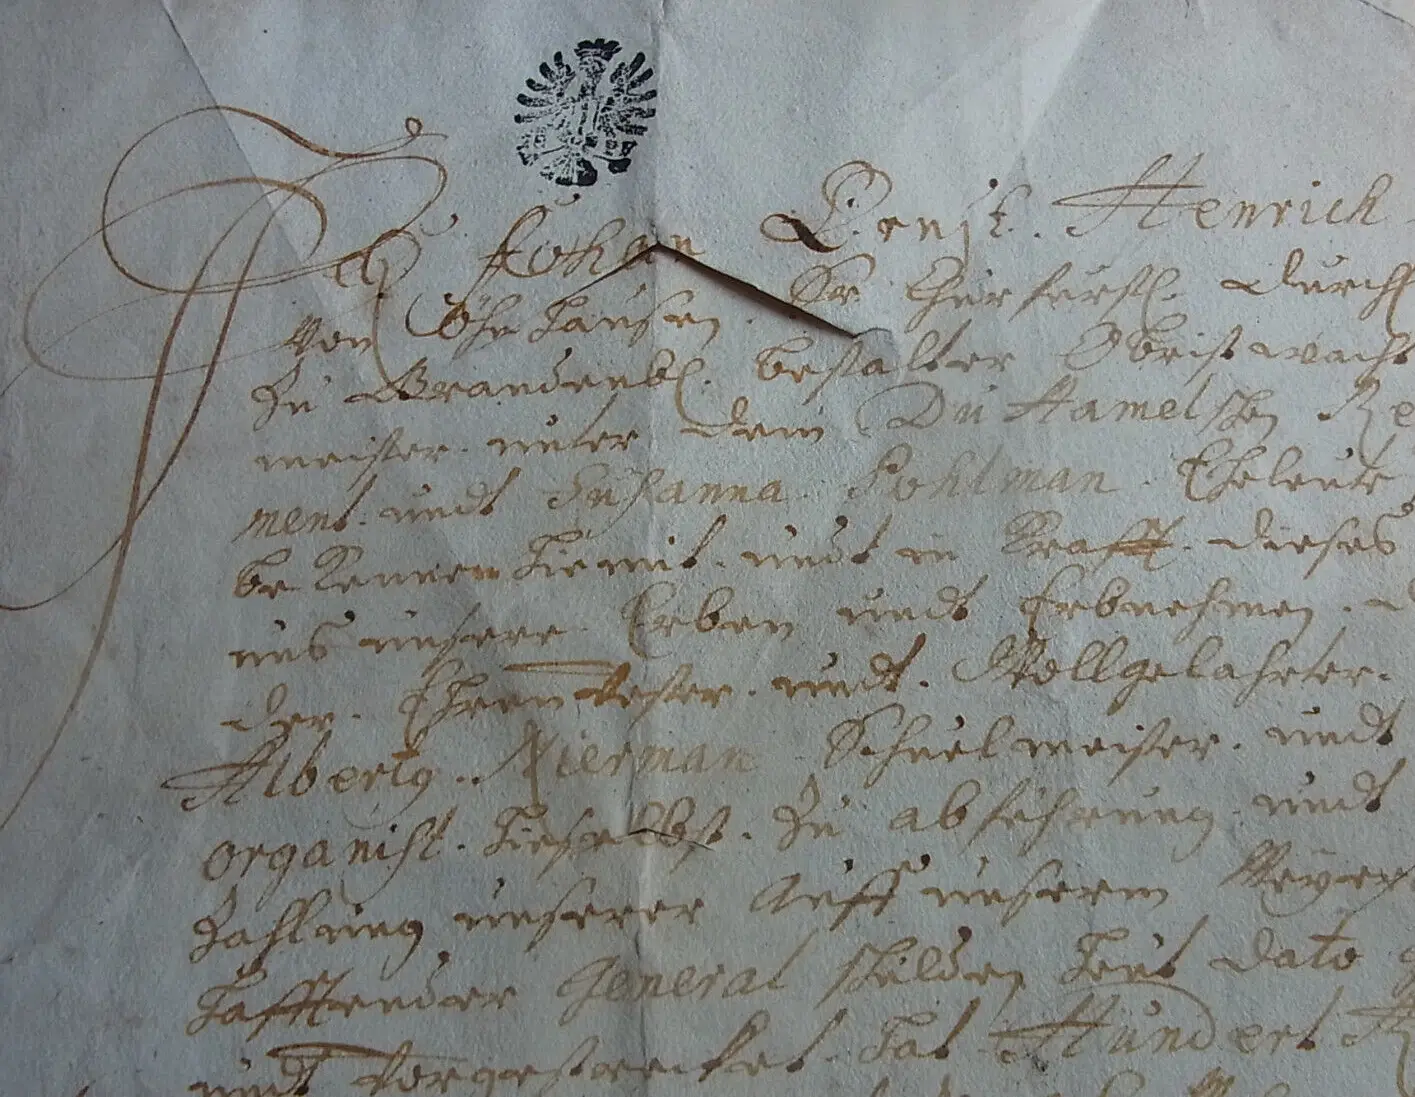 Ich Johan Ernst. Henrich
Von Oÿnhausen. Sr Churfürstl. Durchl
Zu Brandenbl. bestalter Obristwacht
meister. unter dem Du Hamelschen Re
ment. undt Susanna Pohlman. Eheleute,
bekennen hiemit. undt in Krafft. dieses
uns unsere Erben undt Erbnehmen.
der. Ehrenvester. undt. Wollgelahrter.
Albertg. Nierman Schuelmeister. undt
organist. hieselbst. Zu abführung. undt
Zahlung unserer Auff unserm Meyer
hafftender General schulden heut dato g
undt vorgestrecket. hat Hundert R